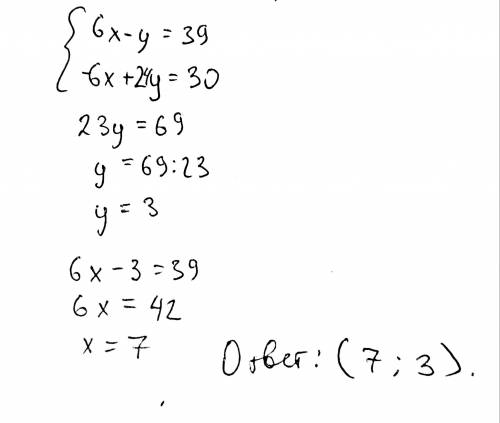 { 6x-y = 39
-6x+24y=30
23y=69
y = 69:23
y = 3
6x-3=39
6x = 42
x = 7
Ответ: (7; 3).